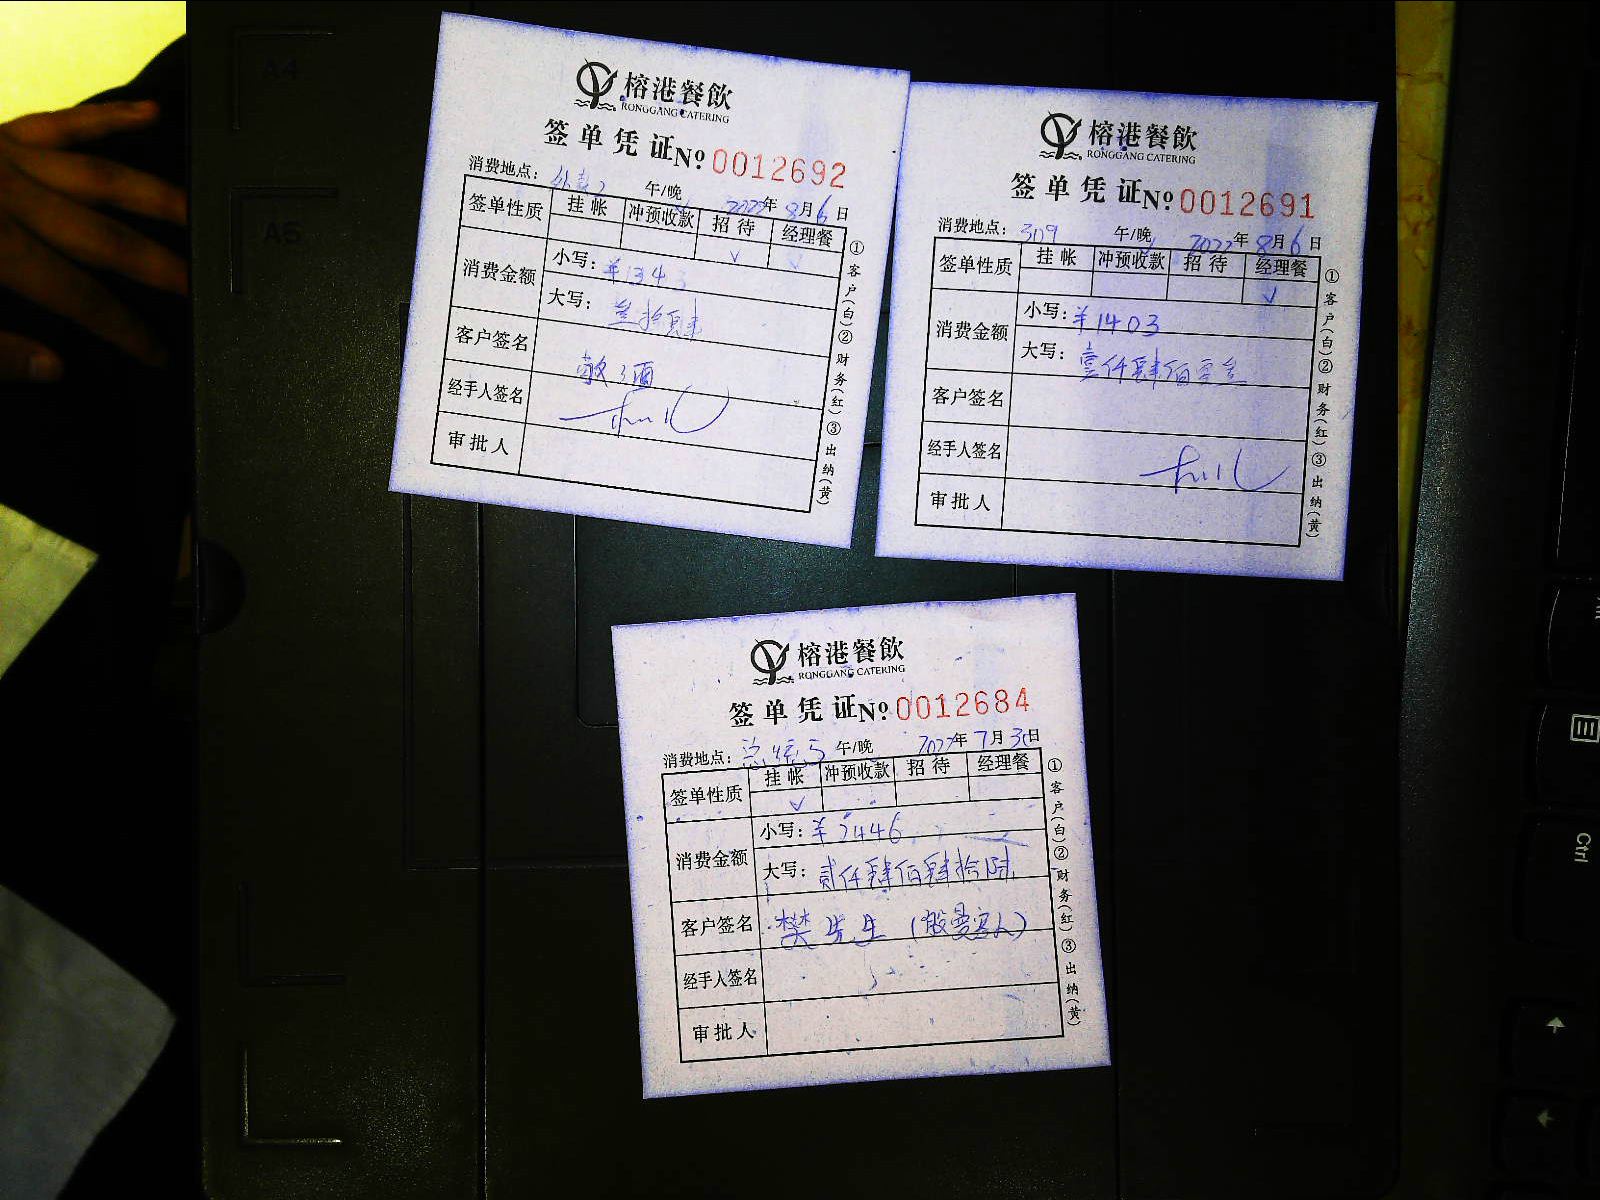 A4
A5
榕港餐飲
RONGGANG CATERING
签单凭证№ 0012692
消费地点： 午/晚 2022年8月6日
签单性质 挂帐 冲预收款 招待 经理餐
√ √
消费金额 小写：¥134
大写：
客户签名
敬酒
经手人签名
审批人
①客户(白)②财务(红)③出纳(黄)
榕港餐飲
RONGGANG CATERING
签单凭证№ 0012691
消费地点：309 午/晚 2022年8月6日
签单性质 挂帐 冲预收款 招待 经理餐
√
消费金额 小写：¥1403
大写：壹仟肆佰零叁
客户签名
经手人签名
审批人
①客户(白)②财务(红)③出纳(黄)
榕港餐飲
RONGGANG CATERING
签单凭证№ 0012684
消费地点：总统5 午/晚 2022年7月30日
签单性质 挂帐 冲预收款 招待 经理餐
√
消费金额 小写：¥2446
大写：贰仟肆佰肆拾陆
客户签名 樊先生（般曼客人）
经手人签名
审批人
①客户(白)②财务(红)③出纳(黄)
Ctrl